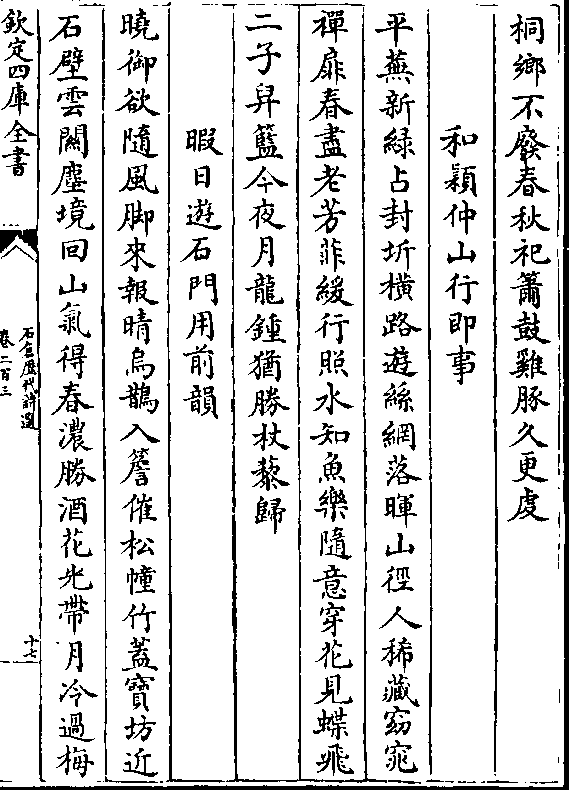 桐鄉不廢春秋祀簫鼓雞豚久更虔
和穎仲山行即事
平蕪新緑占封圻橫路遊絲網落暉山徑人稀藏窈窕
禪扉春盡老芳菲緩行照水知魚樂隨意穿花見蝶飛
二子舁籃今夜月龍鍾猶勝杖藜歸
暇日遊石門用前韻
曉御欲隨風脚來報晴烏鵲入簷催松幢竹蓋寳坊近
石壁雲闗塵境回山氣得春濃勝酒花光帶月冷過梅
欽定四庫全書
石倉歷代詩選
卷二百三
十七